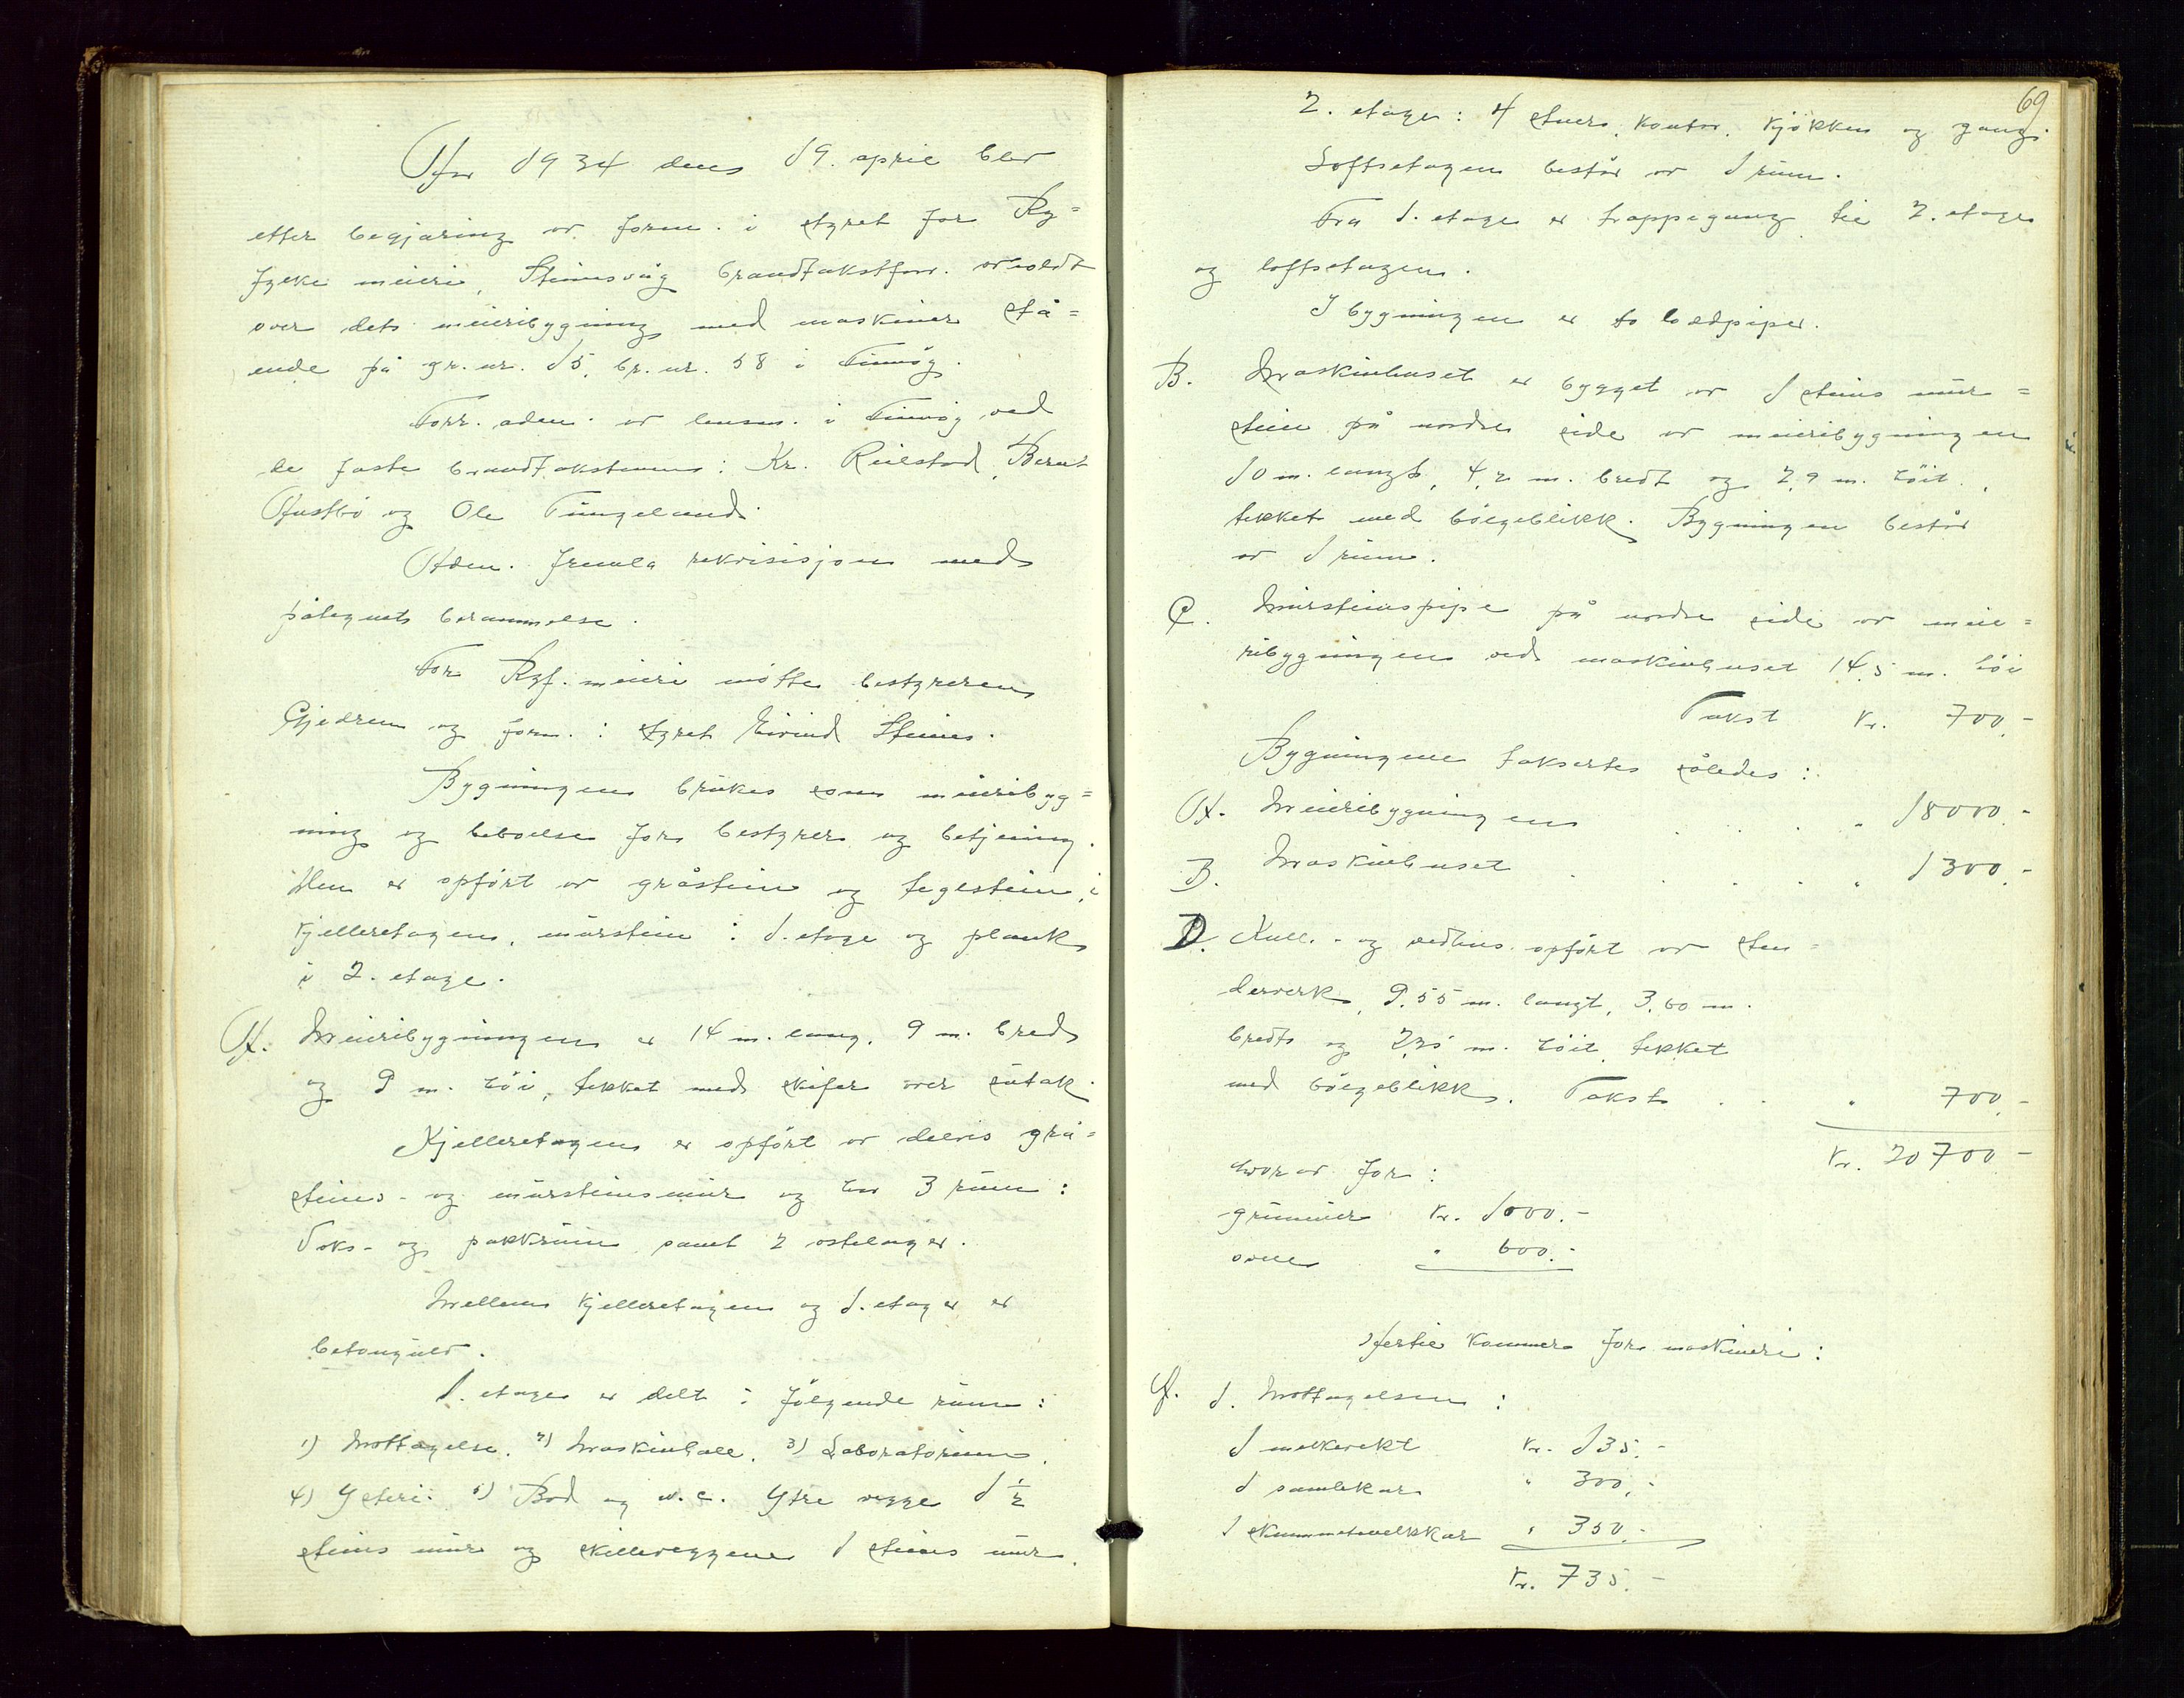 År 1934 den 19. april blev
efter begjæring av form. i styret for Ry=
fylke meieri, Steinsvåg brandtakstforr. avholdt
over dets meieribygning med maskiner stå=
ende på gr. nr. 15, br. nr. 58 i Finnøy.
Forr. adm. av lensm. i Finnøy ved
de faste brandtakstmenn: Kr. Reilstad, Bernt
Austbø og Ole Tungeland.
Adm. fremla rekvisisjon med
påtegnet berammelse.
For Ryf. meieri møtte bestyreren
Gjedrem og form. i styret Eivind Steines.
Bygningen brukes som meieribyg=
ning og beboelse for bestyrer og betjening.
Den er opført av gråstein og teglstein i
kjelleretagen, murstein i 1. etage og plank
i 2. etage.
A. Meieribygningen er 14 m. lang, 9 m. bred
og 9 m. høi, tekket med skifer over sutak.
Kjelleretagen er opført av delvis grå=
steins- og mursteinsmur og har 3 rum:
Voks- og pakkrum samt 2 ostelager.
Mellem kjelleretagen og 1. etage er
betongulv.
1. etage er delt i følgende rum:
1) Mottagelse. 2) Maskinhall. 3) Laboratorium.
4) Ysteri. 5) Bod og w.c. Ytre vegge 1 1/2
steins mur og skilleveggene 1 steins mur.
69
2. etage: 4 stuer, kontor, kjøkken og gang.
Loftsetagen består av 1 rum.
Fra 1. etage er trappegang til 2. etage
og loftsetagen.
I bygningen er to loddpiper.
B. Maskinhuset er bygget av 1 steins mur=
stein på nordre side av meieribygningen
10 m. langt, 4,2 m. bredt og 2,9 m. høit,
tekket med bølgeblikk. Bygningen består
av 1 rum.
C. Mursteinspipe på nordre side av meie=
ribygningen ved maskinhuset 14,5 m. høi
Takst kr. 700.-
Bygningene taksertes således:
A. Meieribygningen . . . . " 18000.-
B. Maskinhuset . . . . " 1300.-
D. Kull- og vedhus opført av sten=
derverk, 9.55 m. langt, 3,60 m.
bredt og 2,35 m. høit, tekket
med bølgeblikk. Takst . . " 700.-
Kr. 20700 -
hvorav for:
grunmur kr. 1000.-
ovner " 600.-
Hertil kommer for maskineri:
A. 1. Mottagelsen:
1 melkevekt kr. 135.-
1 samlekar " 300.-
1 skummetmelkkar " 350.-
Kr. 735.-